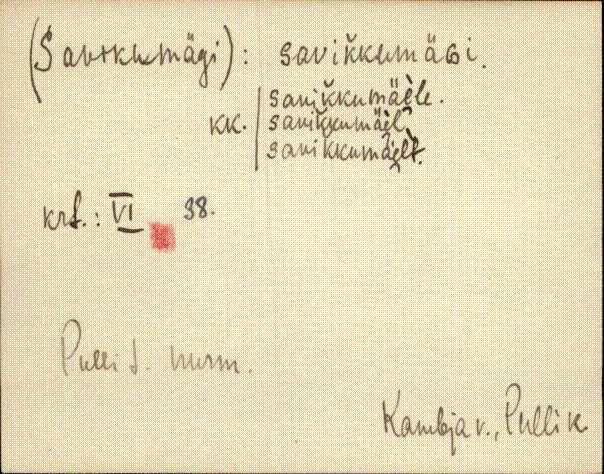 (Savikumägi): savikkumäGi.
savikkumäele.
kk. savikkumäel,
savikkumäelt.
krt.: VI 38.
Pulli t. nurm.
Kambja v., Pulli k.